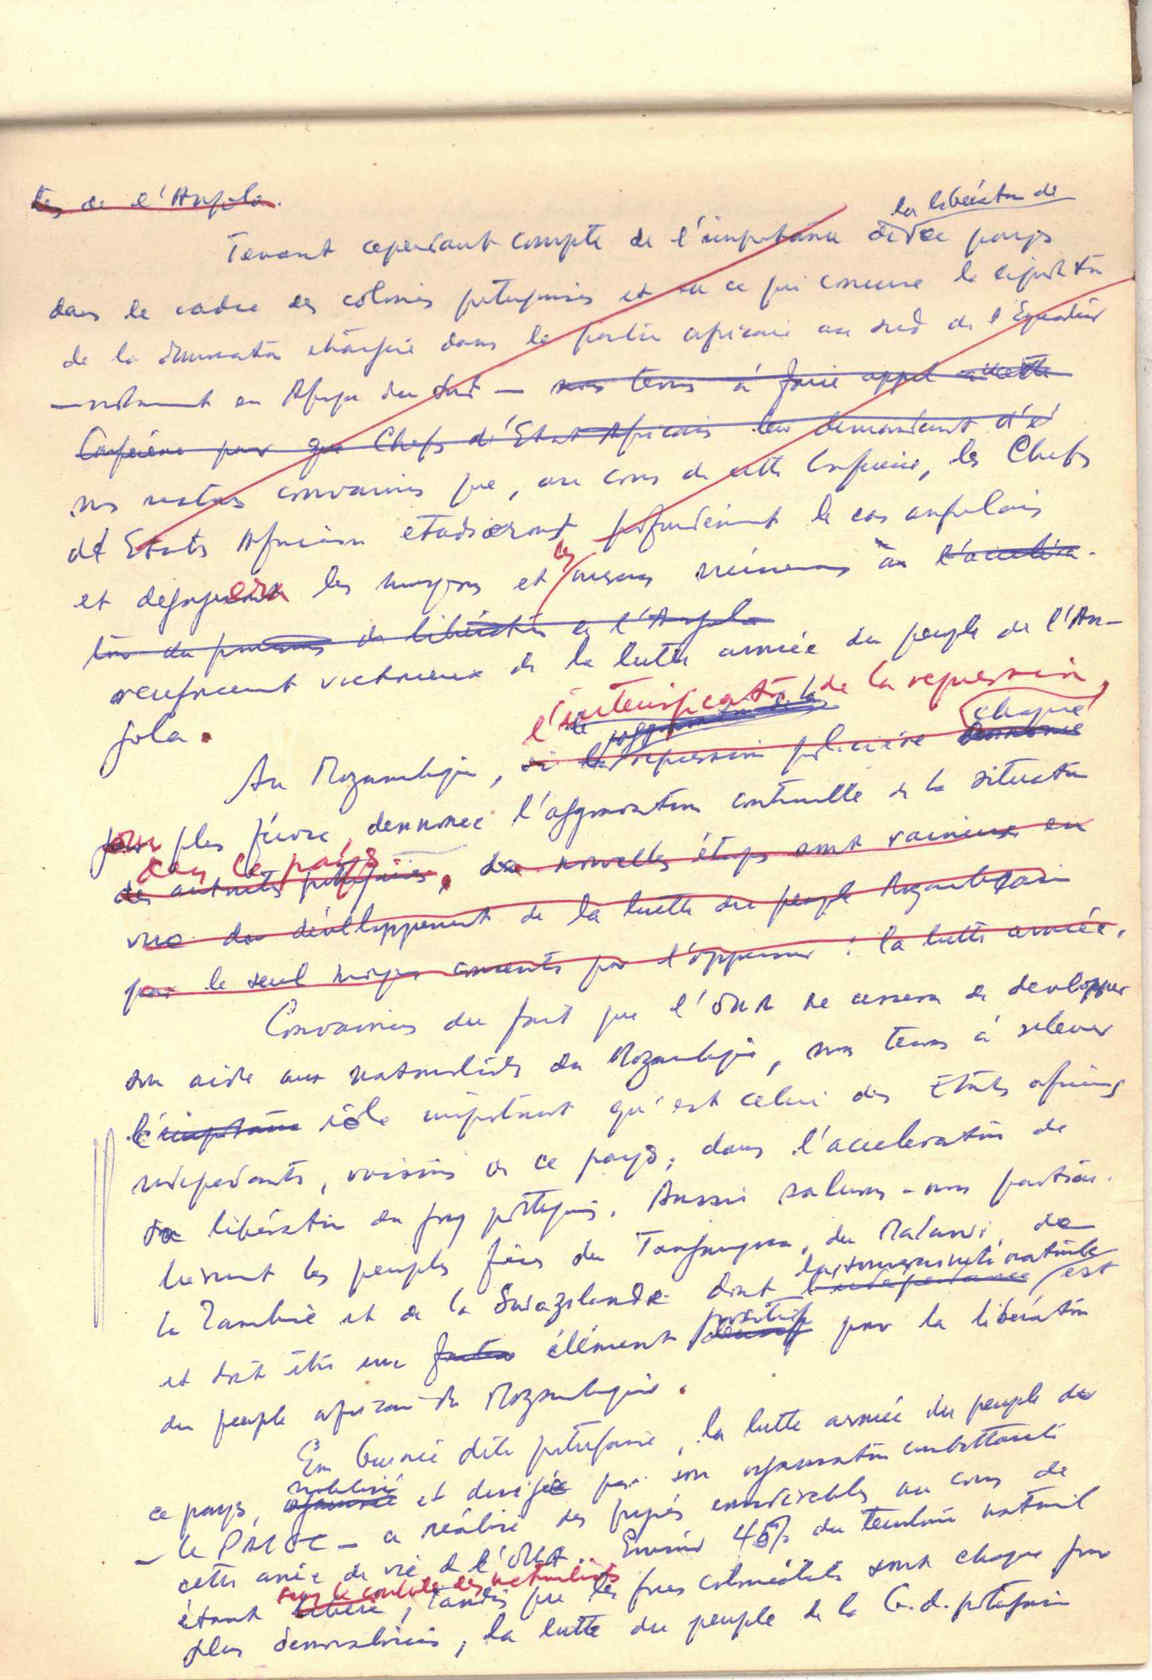 de l'Angola.
la libération de
Tenant cependant compte de l'importance de ce pays
dans le cadre des colonies portugaises et en ce qui concerne la
de la domination étrangère dans la partie africaine au sud de l'Equateur
— notamment en Afrique du Sud — nous tenons à faire appel à cette
Conférence pour que Chefs d'Etat Africains
nous restons convaincus que, au cours de cette Conférence, les Chefs
d'Etats Africains étudieront profondément le cas angolais
et les moyens et les mesures nécessaires au
de libération de l'Angola
renforcement victorieux de la lutte armée du peuple de l'An-
gola.
l'intensification de la repression,
Au Mozambique, la repression policière chaque
jour plus féroce, dénonce l'aggravation continuelle de la situation
dans ce pays
des autorités portugaises, de nouvelles étapes sont vaincues en
vue du développement de la lutte du peuple Mozambicain
par le seul moyen consenti par l'oppresseur : la lutte armée.
Convaincus du fait que l'OUA ne cessera de developper
son aide aux nationalistes du Mozambique, nous tenons à relever
l'importance rôle important qu'est celui des Etats africains
indépendants, voisins de ce pays, dans l'acceleration de
sa libération du joug portugais. Aussi saluons-nous particu-
lièrement les peuples frères du Tanganyka, du Malawi, de
la souveraineté nationale
la Zambie et de la Swazilande dont l'indépendance est
positif
et doit être un facteur élément décisif pour la libération
du peuple africain du Mozambique.
En Guinée dite portugaise, la lutte armée du peuple de
mobilisé
ce pays, organisé et dirigée par son organisation combattante
— le PAIGC — a réalisé des progrès considérables au cours de
cette année de vie de l'OUA. Environ 45% du territoire national
sous le contrôle des nationalistes
étant libéré, tandis que les forces colonialistes sont chaque jour
plus démoralisées, la lutte du peuple de la G. d. portugaise